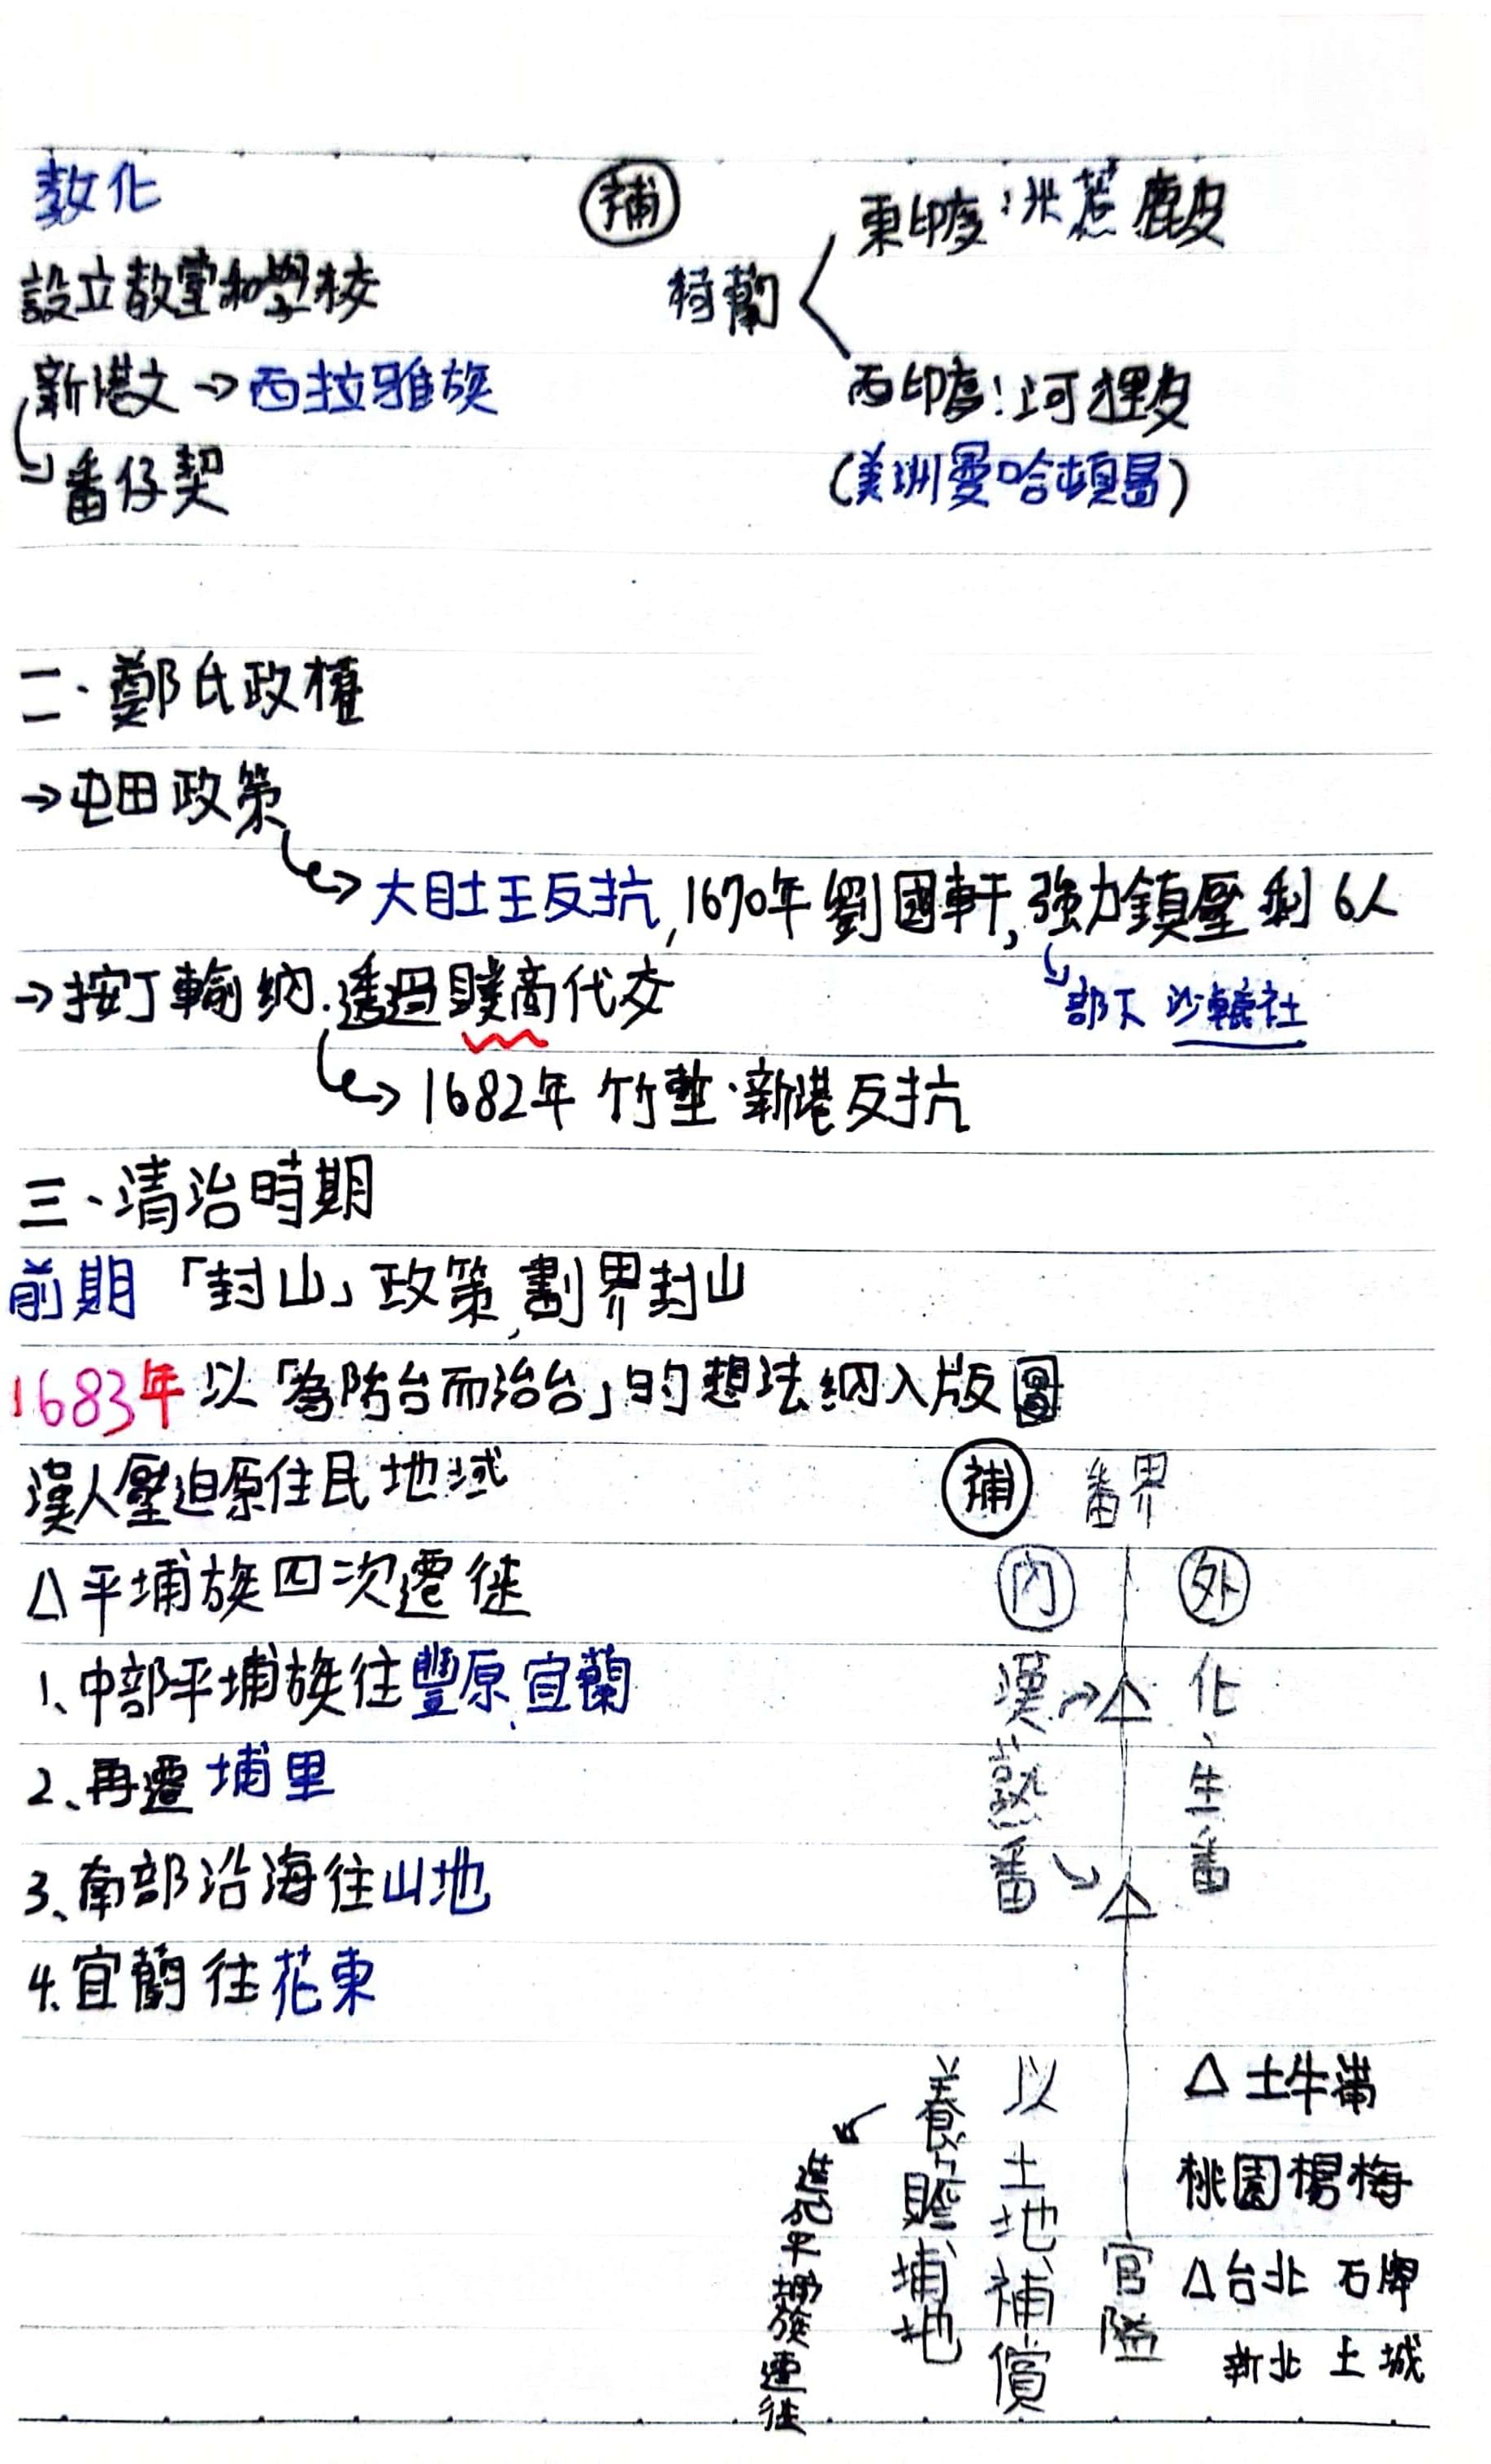 教化
設立教堂和學校
新港文→西拉雅族
番仔契
補
荷蘭
東印度：米蔗鹿皮
西印度：河狸皮
(美洲曼哈頓島)
二、鄭氏政權
→屯田政策
→大肚王反抗,1670年劉國軒,強力鎮壓剩6人
部下 沙轆社
→按丁輸納.透過贌商代交
→1682年 竹塹·新港反抗
三、清治時期
前期「封山」政策,劃界封山
1683年以「為防台而治台」的想法納入版圖
漢人壓迫原住民地域
△平埔族四次遷徙
1、中部平埔族往豐原、宜蘭
2、再遷埔里
3、南部沿海往山地
4.宜蘭往花東
補 番界
內 外
漢、熟番
化、生番
官隘
以土地補償
養贍埔地
造成平埔族遷徙
△土牛溝
桃園楊梅
△台北 石牌
新北 土城